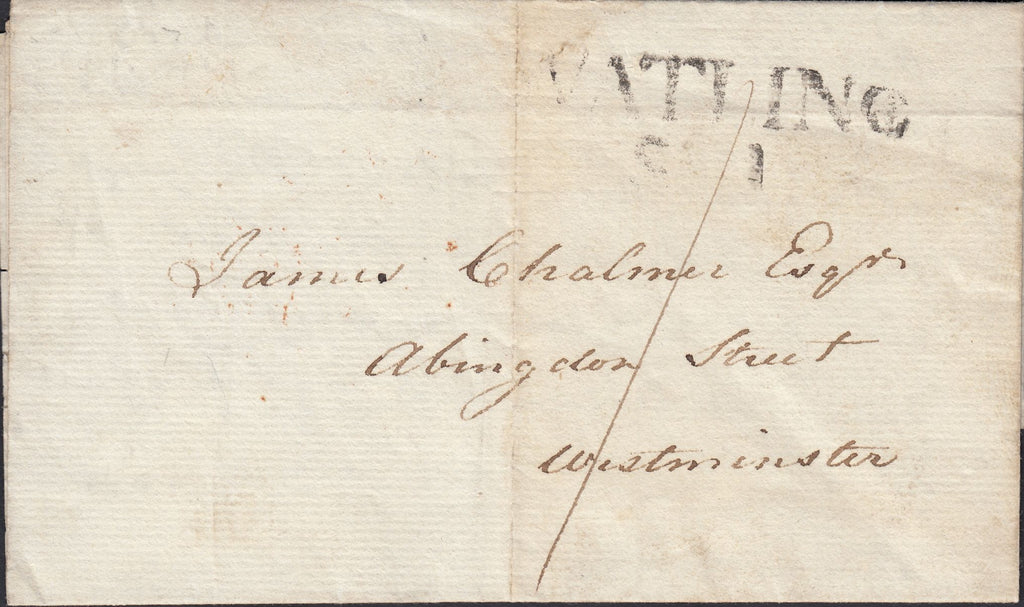 WATLING
S 1
James Chalmer Esqr
Abingdon Street
Westminster